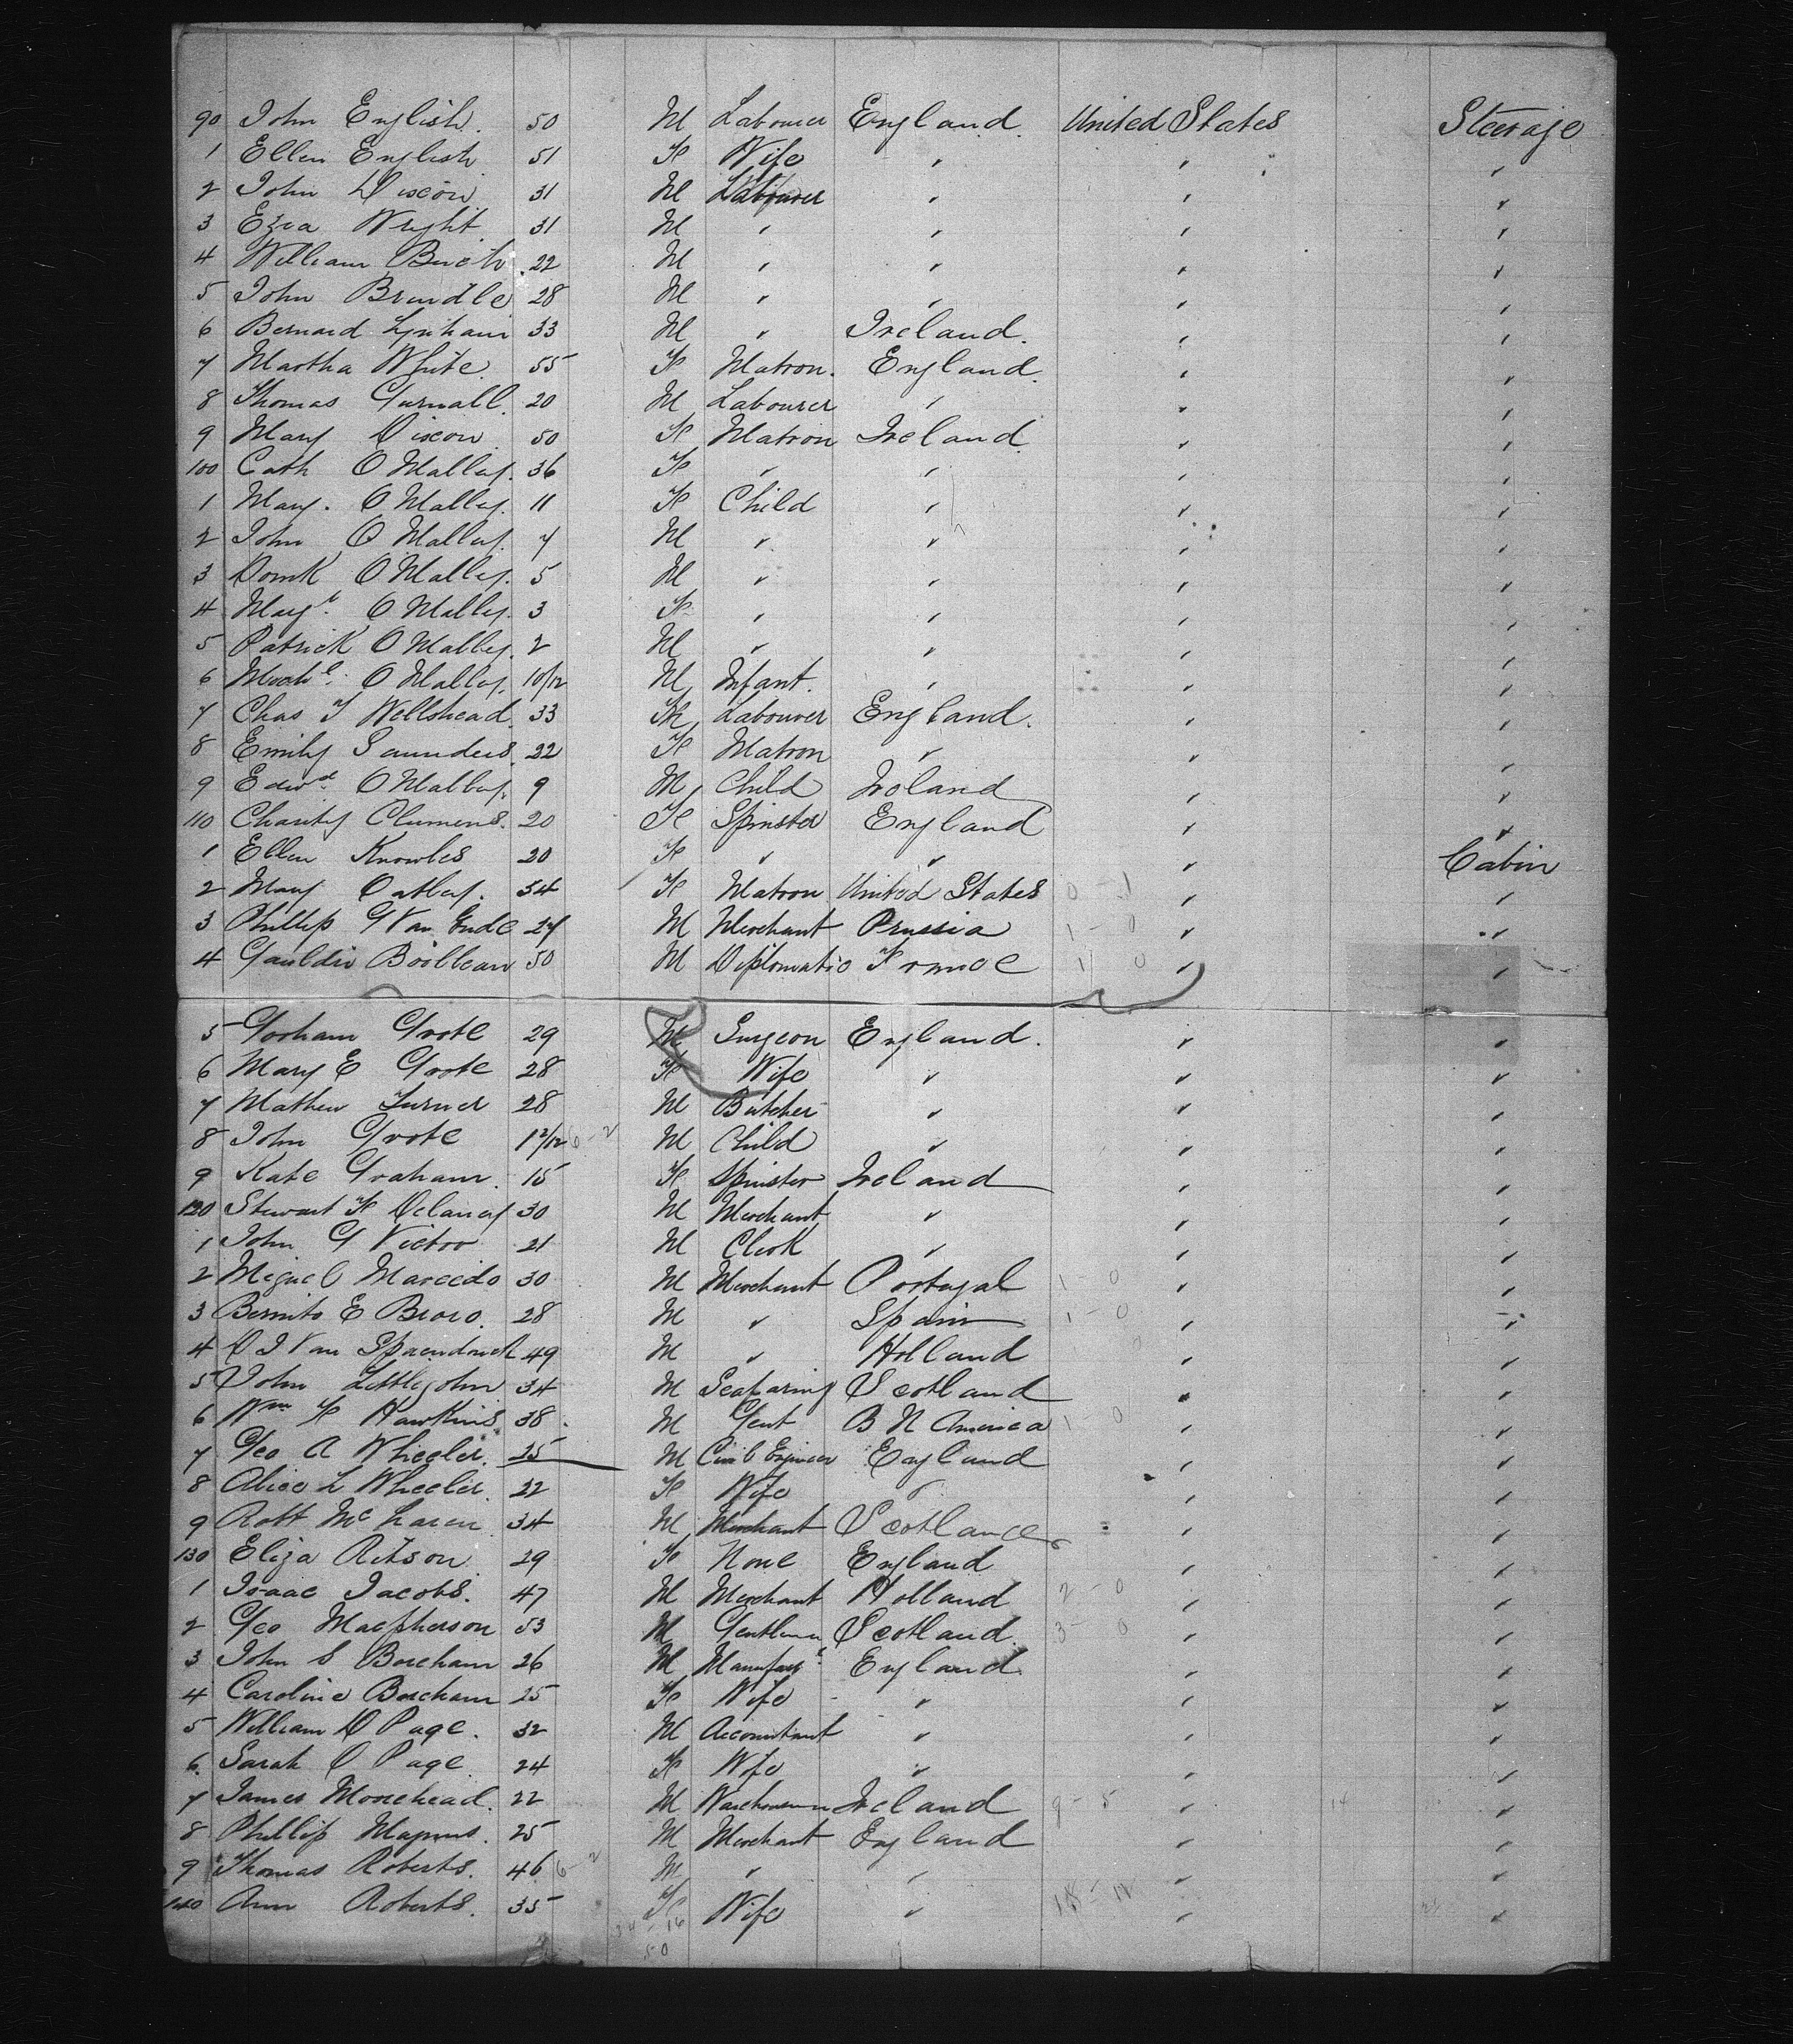 90 John English. 50 M Labourer England. United States Steerage
1 Ellen English 51 F Wife " " "
2 John Dixon 31 M Labourer " " "
3 Ezra Wright 31 M " " " "
4 William Birch 22 M " " " "
5 John Brindle 28 M " " " "
6 Bernard 33 M " Ireland. " "
7 Martha White 55 F Matron. England. " "
8 Thomas Gurnall. 20 M Labourer " " "
9 Mary Dixon 50 F Matron Ireland " "
100 Cath O Malley. 36 F " " " "
1 Mary. O Malley. 11 F Child " " "
2 John O Malley. 7 M " " " "
3 Domk O Malley. 5 M " " " "
4 Margt. O Malley. 3 F " " " "
5 Patrick O Malley. 2 M " " " "
6 Michl. O Malley. 10/12 M Infant. " " "
7 Chas T Wellshead. 33 M Labourer England. " "
8 Emily Saunders. 22 F Matron " " "
9 Edwd. O Malley. 9 M Child Ireland " "
110 Charity Clemens. 20 F Spinster England " "
1 Ellen Knowles 20 F " " " Cabin
2 Mary Oatley. 54 F Matron United States 0 - 1 " "
3 Phillip G Van 24 M Merchant Prussia 1 - 0 " "
4 50 M Diplomatic France 1 0 " "
5 Gorham Grote 29 M Surgeon England. " "
6 Mary E Grote 28 F Wife " " "
7 Mathew Turner 28 M Butcher " " "
8 John Grote M Child " " "
9 Kate Graham. 15 F Spinster Ireland " "
120 Stewart F Delancy 30 M Merchant " " "
1 John G Victor 21 M Clerk " " "
2 Miguel Marcedo 30 M Merchant Portugal 1 0 " "
3 Bernito E 28 M " Spain 1 - 0 " "
4 D J Van 49 M " Holland 0 " "
5 John Littlejohn 34 M Seafaring Scotland " "
6 Wm F Hawkins 38. M Gent B N America 1 - 0 " "
7 Geo A Wheeler. 25 M Civil Engineer England " "
8 Alice L Wheeler. 22 F Wife " " "
9 Robt McLaren 34 M Merchant Scotland " "
130 Eliza Ritson 29 F None England " "
1 Isaac Jacobs. 47 M Merchant Holland 2 - 0 " "
2 Geo Macpherson 53 M Gentleman Scotland. 3 - 0 " "
3 John S Boreham 26 M England " "
4 Caroline Boreham 25 F Wife " " "
5 William D Page. 32 M Accountant " " "
6. Sarah O Page 24 F Wife " " "
7 James Moorehead. 22 M Warehouseman Ireland 9 - 5 " 14 "
8 Phillip Magnus. 25 M Merchant England " "
9 Thomas Roberts. 46 6 - 2 M " " " "
140 Ann Roberts. 35 F Wife " " "
50